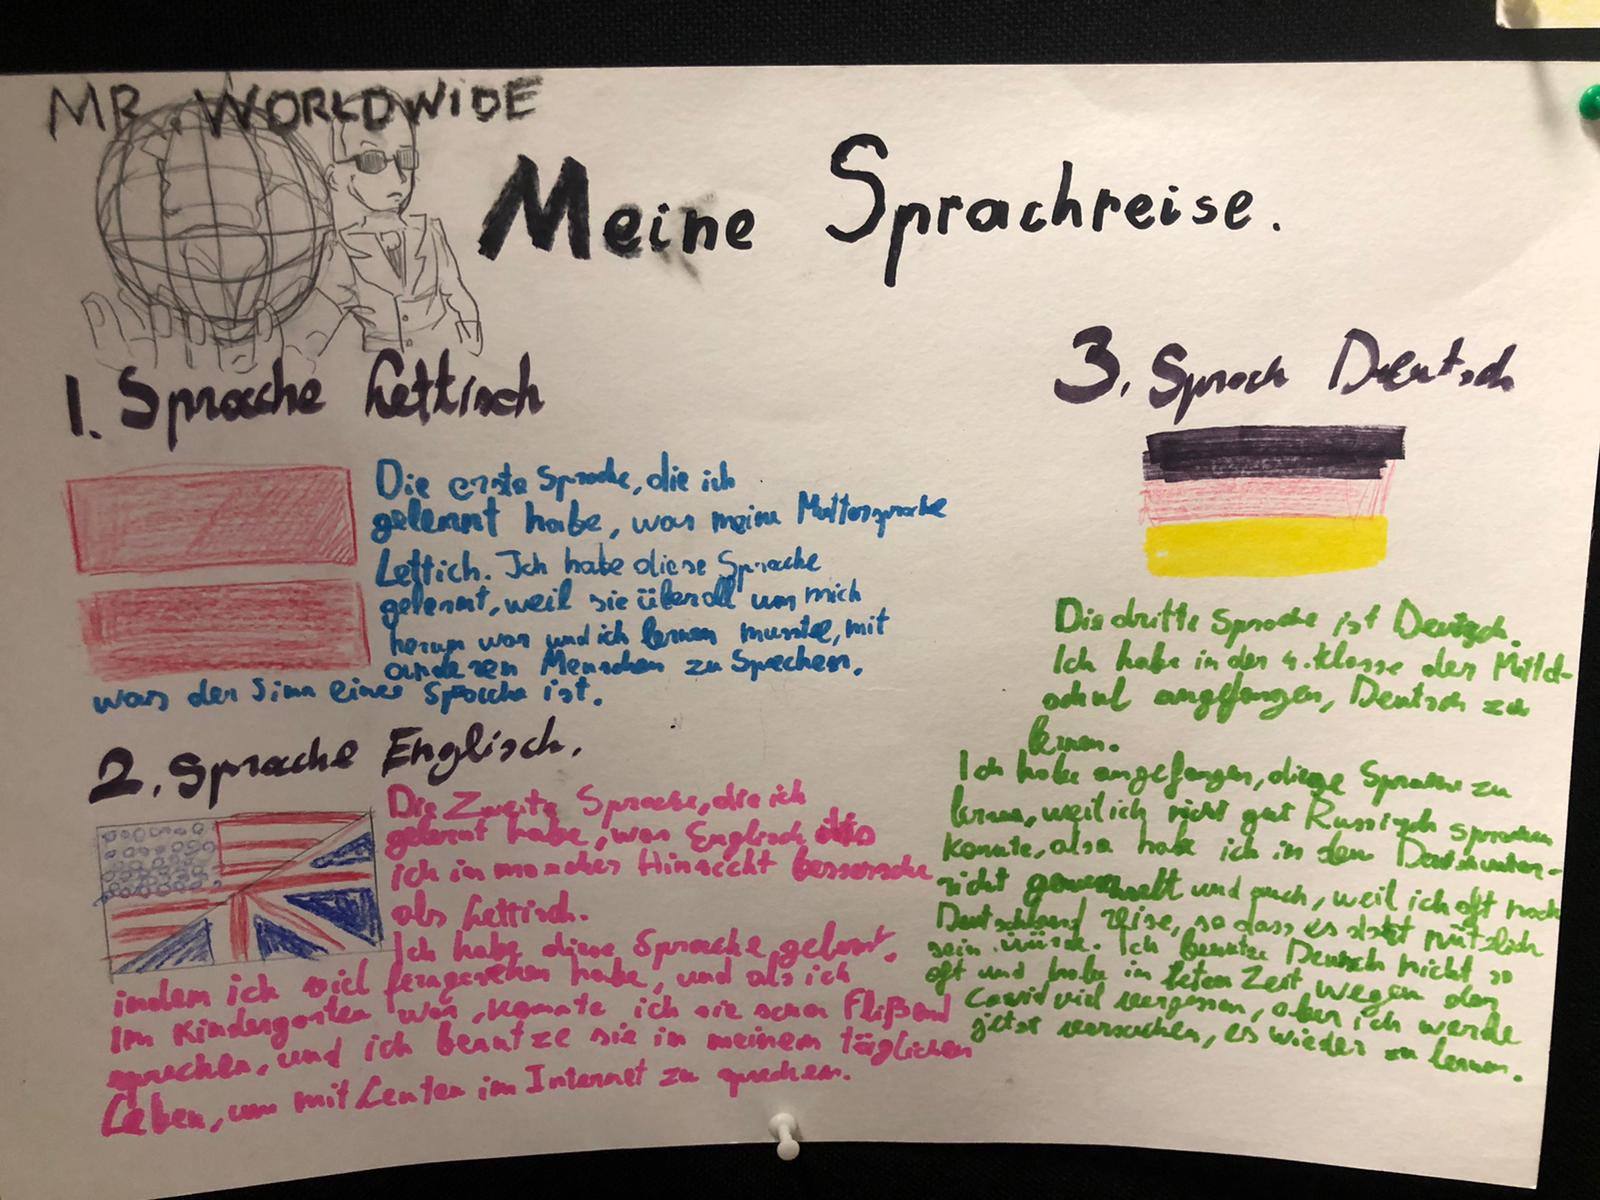 MR. WORLDWIDE
Meine Sprachreise.
1. Sprache Lettisch
Die erste Sprache, die ich
gelernt habe, war meine Muttersprache
Lettich. Ich habe diese Sprache
gelernt, weil sie überall um mich
herum war und ich lernen musste, mit
anderen Menschen zu Sprechen,
was der Sinn einer Sprache ist.
2. Sprache Englisch.
Die Zweite Sprache, die ich
gelernt habe, war Englisch,
ich in mancher Hinsicht
als Lettisch.
Ich habe diese Sprache gelernt,
indem ich viel ferngesehen habe, und als ich
im Kindergarten war, konnte ich sie schon Flißend
sprechen, und ich benutze sie in meinem täglichen
Leben, um mit Leuten im Internet zu sprechen.
3. Sprach Deutsch
Die dritte Sprache ist Deutsch.
Ich habe in der 4. Klasse der
schul angefangen, Deutsch zu
lernen.
Ich habe angefangen, diese Sprache zu
lernen, weil ich nicht gut Russisch sprechen
konnte, also habe ich in den
nicht und auch, weil ich oft nach
Deutschland reise, so dass es dort nützlich
sein würde. Ich benutze Deutsch nicht so
oft und habe in letzen Zeit wegen den
Covid viel vergessen, aber ich werde
jetzt versuchen, es wieder zu lernen.